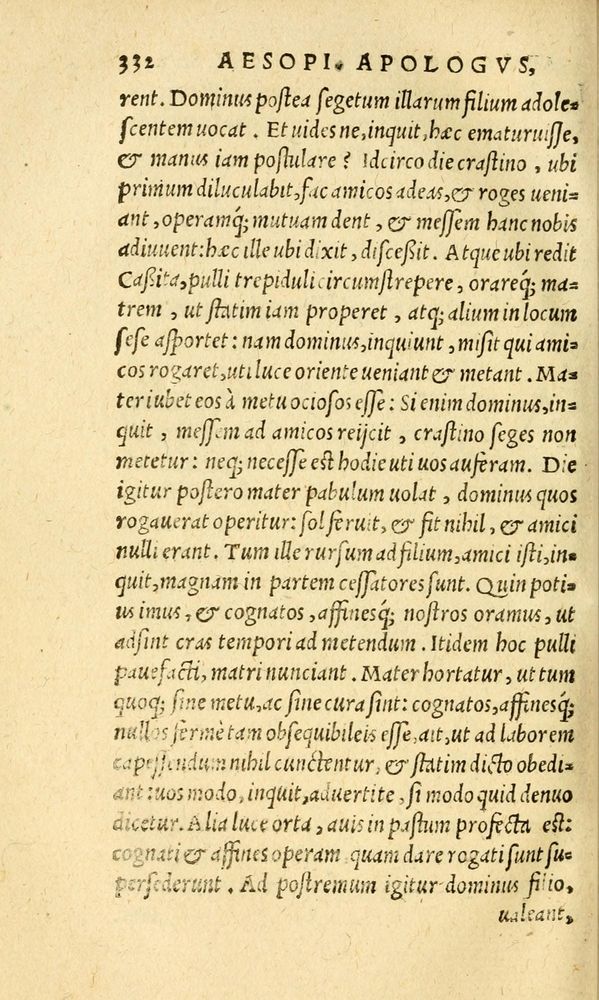 332 AESOPI. APOLOGVS,
rent. Dominus postea segetum illarum filium adole-
scentem uocat . Et uides ne, inquit, hæc ematuruisse,
& manus iam postulare ? Idcirco die crastino , ubi
primum diluculabit, fac amicos adeas, & roges ueni-
ant , operamq́; mutuam dent , & messem hanc nobis
adiuuent: hæc ille ubi dixit, discessit. Atque ubi redit
Cassita, pulli trepiduli circumstrepere, orareq́; ma-
trem , ut statim iam properet , atq; alium in locum
sese asportet : nam dominus, inquiunt , misit qui ami-
cos rogaret, uti luce oriente ueniant & metant . Ma-
ter iubet eos à metu ociosos esse : Si enim dominus, in-
quit , messem ad amicos reijcit , crastino seges non
metetur : neq; necesse est hodie uti uos auferam. Die
igitur postero mater pabulum uolat , dominus quos
rogauerat operitur: sol feruit, & fit nihil, & amici
nulli erant . Tum ille rursum ad filium, amici isti, in-
quit, magnam in partem cessatores sunt. Quin poti-
us imus, & cognatos , affinesq́; nostros oramus, ut
adsint cras tempori ad metendum . Itidem hoc pulli
pauefacti, matri nunciant . Mater hortatur, ut tum
quoq; sine metu, ac sine cura sint: cognatos, affinesq́;
nullos fermè tam obsequibileis esse, ait, ut ad laborem
capessendum nihil cunctentur, & statim dicto obedi-
ant : uos modo, inquit, aduertite , si modo quid denuo
dicetur. Alia luce orta , auis in pastum profecta est:
cognati & affines operam quam dare rogati sunt su-
persederunt . Ad postremum igitur dominus filio,
ualeant,